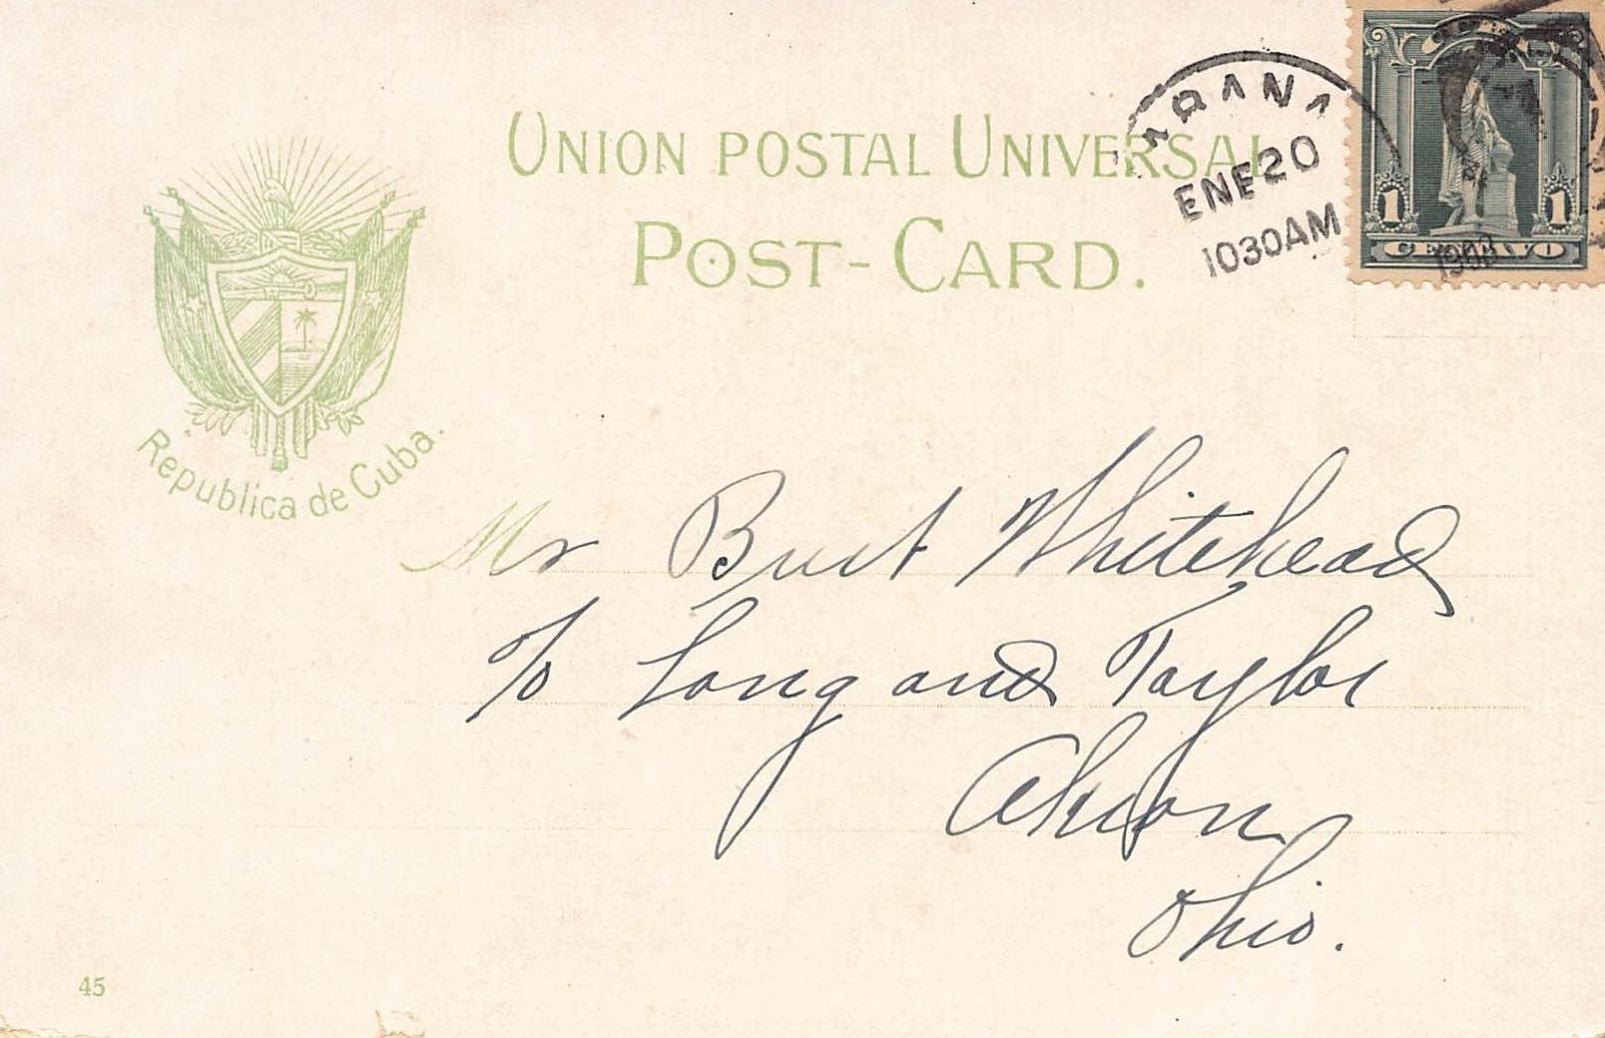 UNION POSTAL UNIVERSAL
POST-CARD.
HABANA
ENE 20
1030AM
1
1
CENTAVO
Republica de Cuba.
Mr Burt Whitehead
To Long and Taylor
Akron
Ohio.
45